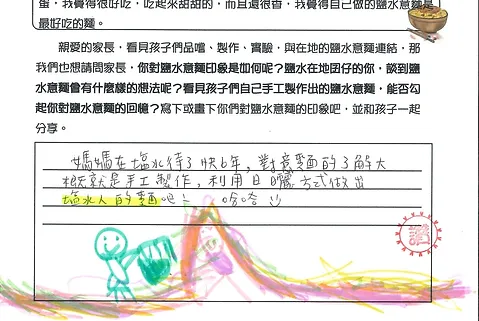 蛋，我覺得很好吃，吃起來甜甜的，而且還很香，我覺得自己做的鹽水意麵是
最好吃的麵。
親愛的家長，看見孩子們品嚐、製作、實驗，與在地的鹽水意麵連結，那
我們也想請問家長，你對鹽水意麵印象是如何呢？鹽水在地囝仔的你，談到鹽
水意麵會有什麼樣的想法呢？看見孩子們自己手工製作出的鹽水意麵，能否勾
起你對鹽水意麵的回憶？寫下或畫下你們對鹽水意麵的印象吧，並和孩子一起
分享。
媽媽在塩水待了快6年，對意麵的了解大
概就是手工製作，利用日曬方式做出
塩水人的麵吧！ 哈哈